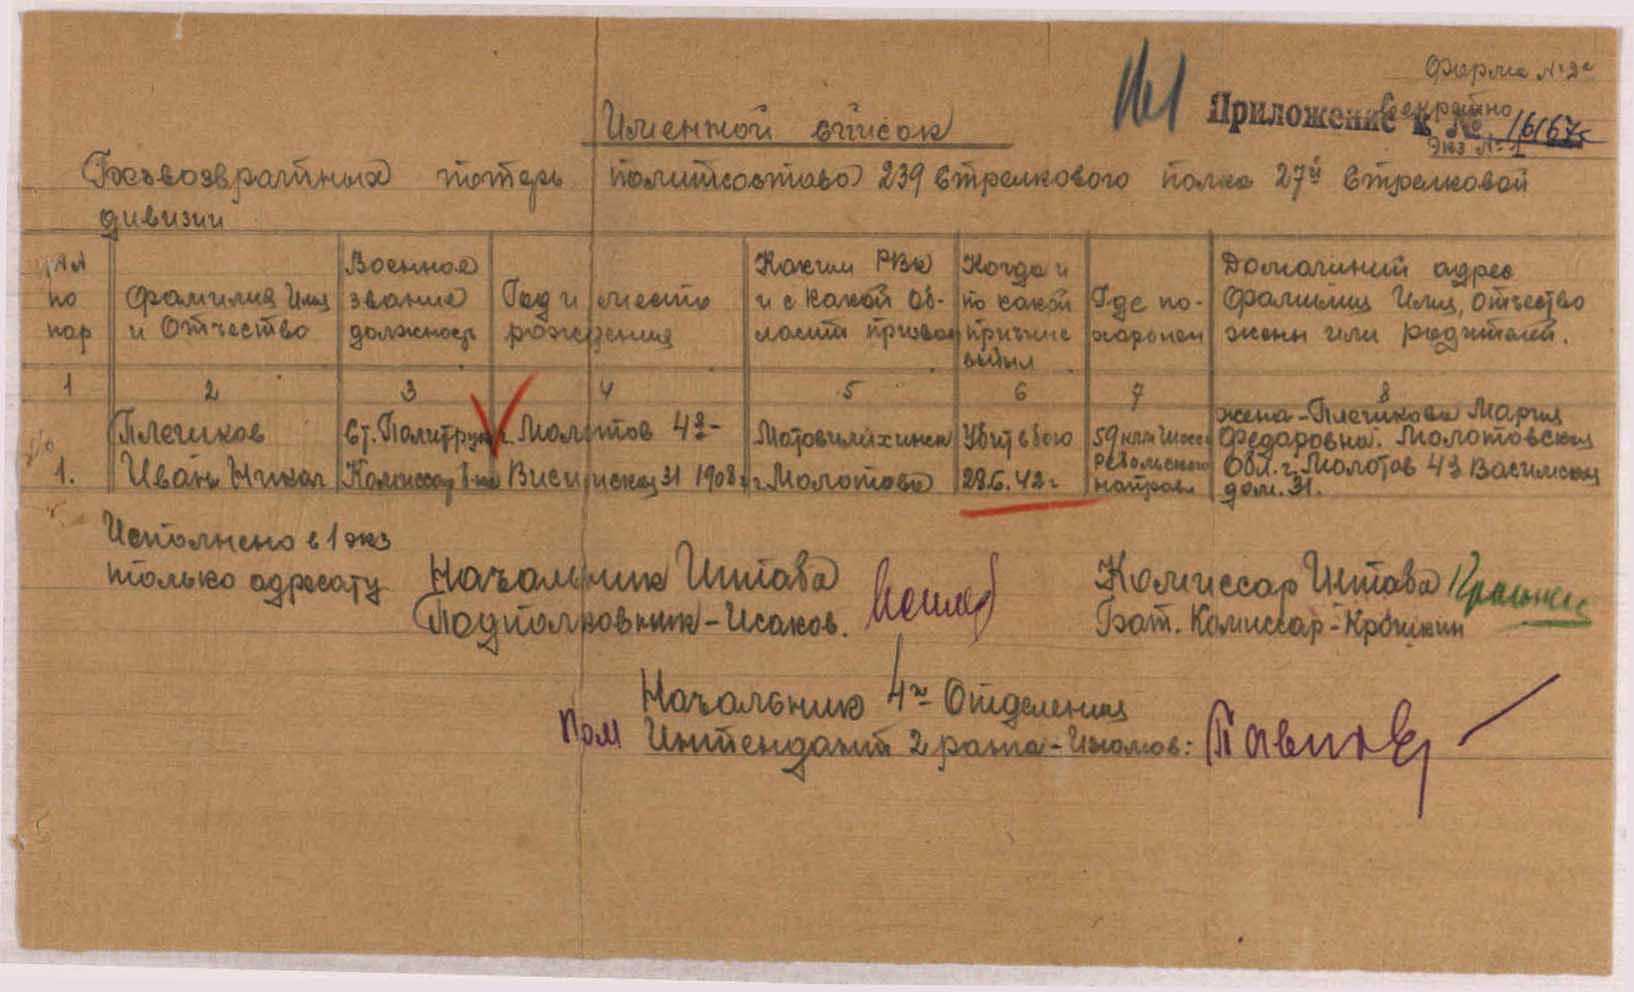 Форма №2а
Секретно
Приложение к № 16167с
Экз №1
Именной список
Безвозвратных потерь политсостава 239 стрелкового полка 27й стрелковой
дивизии
№№ по пор
Фамилия Имя и Отчество
Военное звание должность
Год и место рождения
Каким РВК и с какой области призван
Когда и по какой причине выбыл
Где похоронен
Домашний адрес фамилия Имя, отчество жены или родителей.
1 2 3 4 5 6 7 8
1.
Плешков Иван Никол
Ст. Политрук Комиссар б-на
г. Молотов 4я- 31 1908г
Мотовилихинск г. Молотова
Убит в бою 28.6.42г
59 клм шоссе Ребольского направл
жена - Плешкова Мария
Федоровна. Молотовская
Обл. г. Молотов 4я Васимская
дом. 31.
Исполнено в 1 экз
только адресату
Начальник Штаба
Подполковник - Исаков.
Комиссар Штаба
Бат. Комиссар - Крошкин
Начальник 4го Отделения
Пом Интендант 2 ранга - Изюмов: